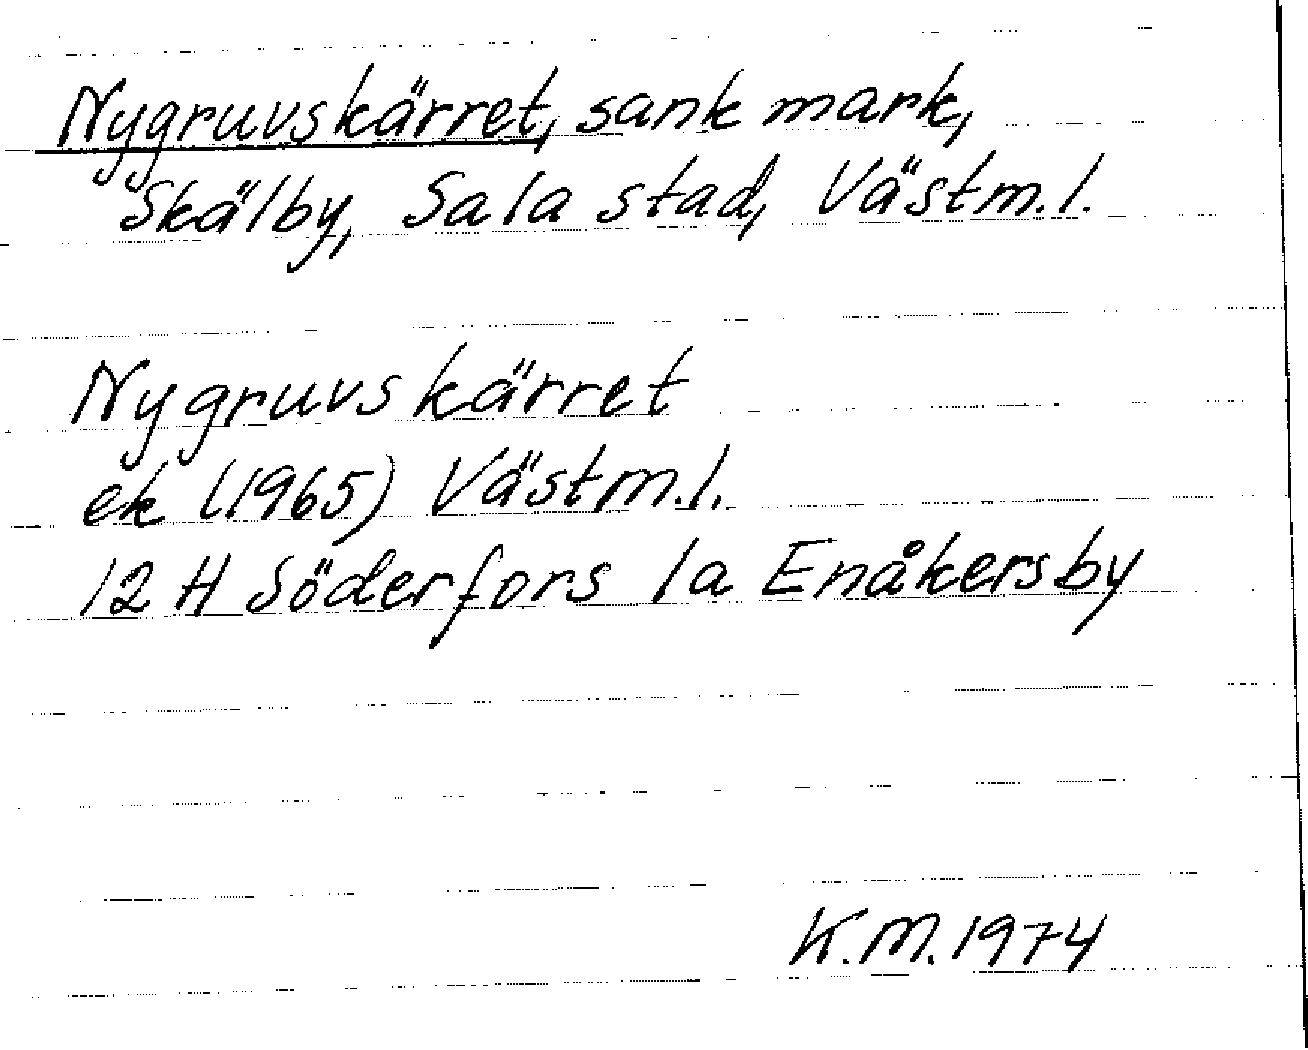 Nygruvskärret, sank mark,
Skälby, Sala stad, Västm.l.
Nygruvskärret
ek (1965) Västm.l.
12 H Söderfors 1a Enåkersby
K.M. 1974